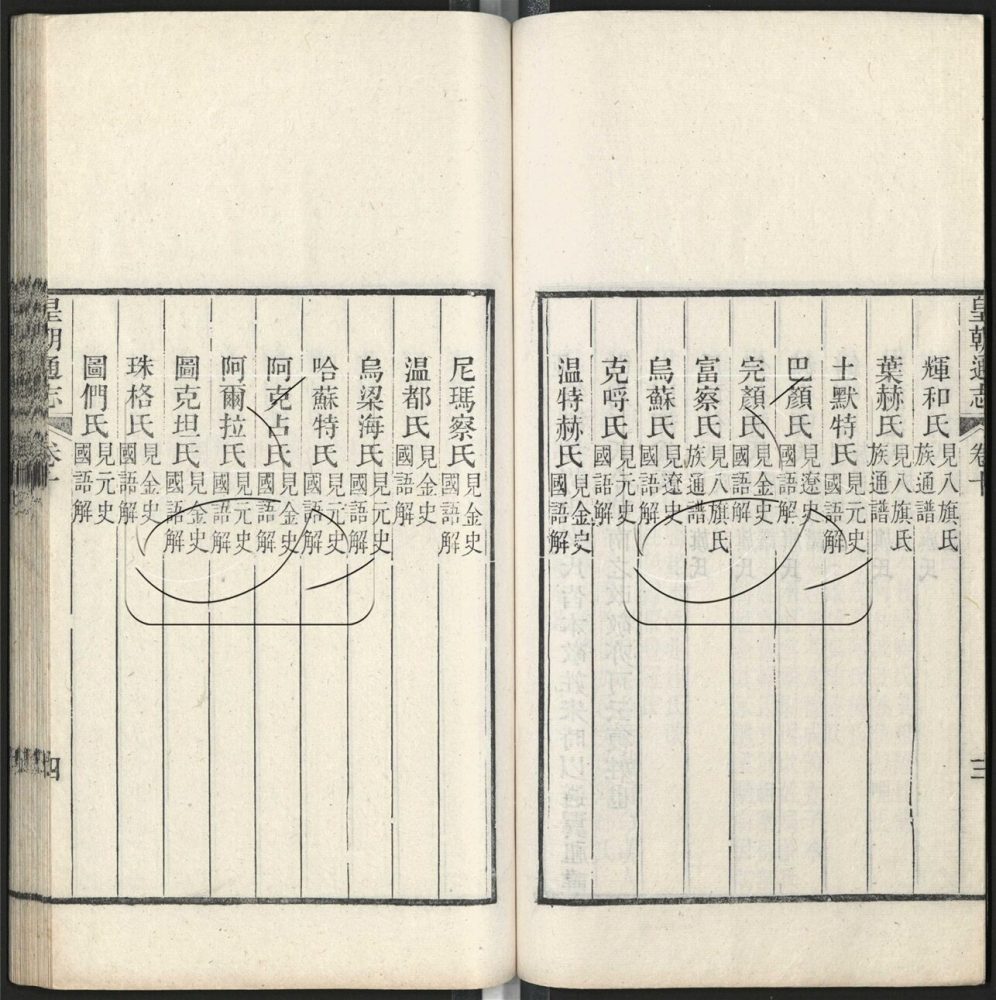 皇朝通志 卷十 三
輝和氏見八旗氏族通譜
葉赫氏見八旗氏族通譜
土默特氏見元史國語解
巴顏氏見遼史國語解
完顏氏見金史國語解
富察氏見八旗氏族通譜
烏蘇氏見遼史國語解
克哷氏見元史國語解
温特赫氏見金史國語解
尼瑪察氏見金史國語解
温都氏見金史國語解
烏梁海氏見元史國語解
哈蘇特氏見元史國語解
阿克占氏見金史國語解
阿爾拉氏見元史國語解
圖克坦氏見金史國語解
珠格氏見金史國語解
圖們氏見元史國語解
皇朝通志 卷十 四